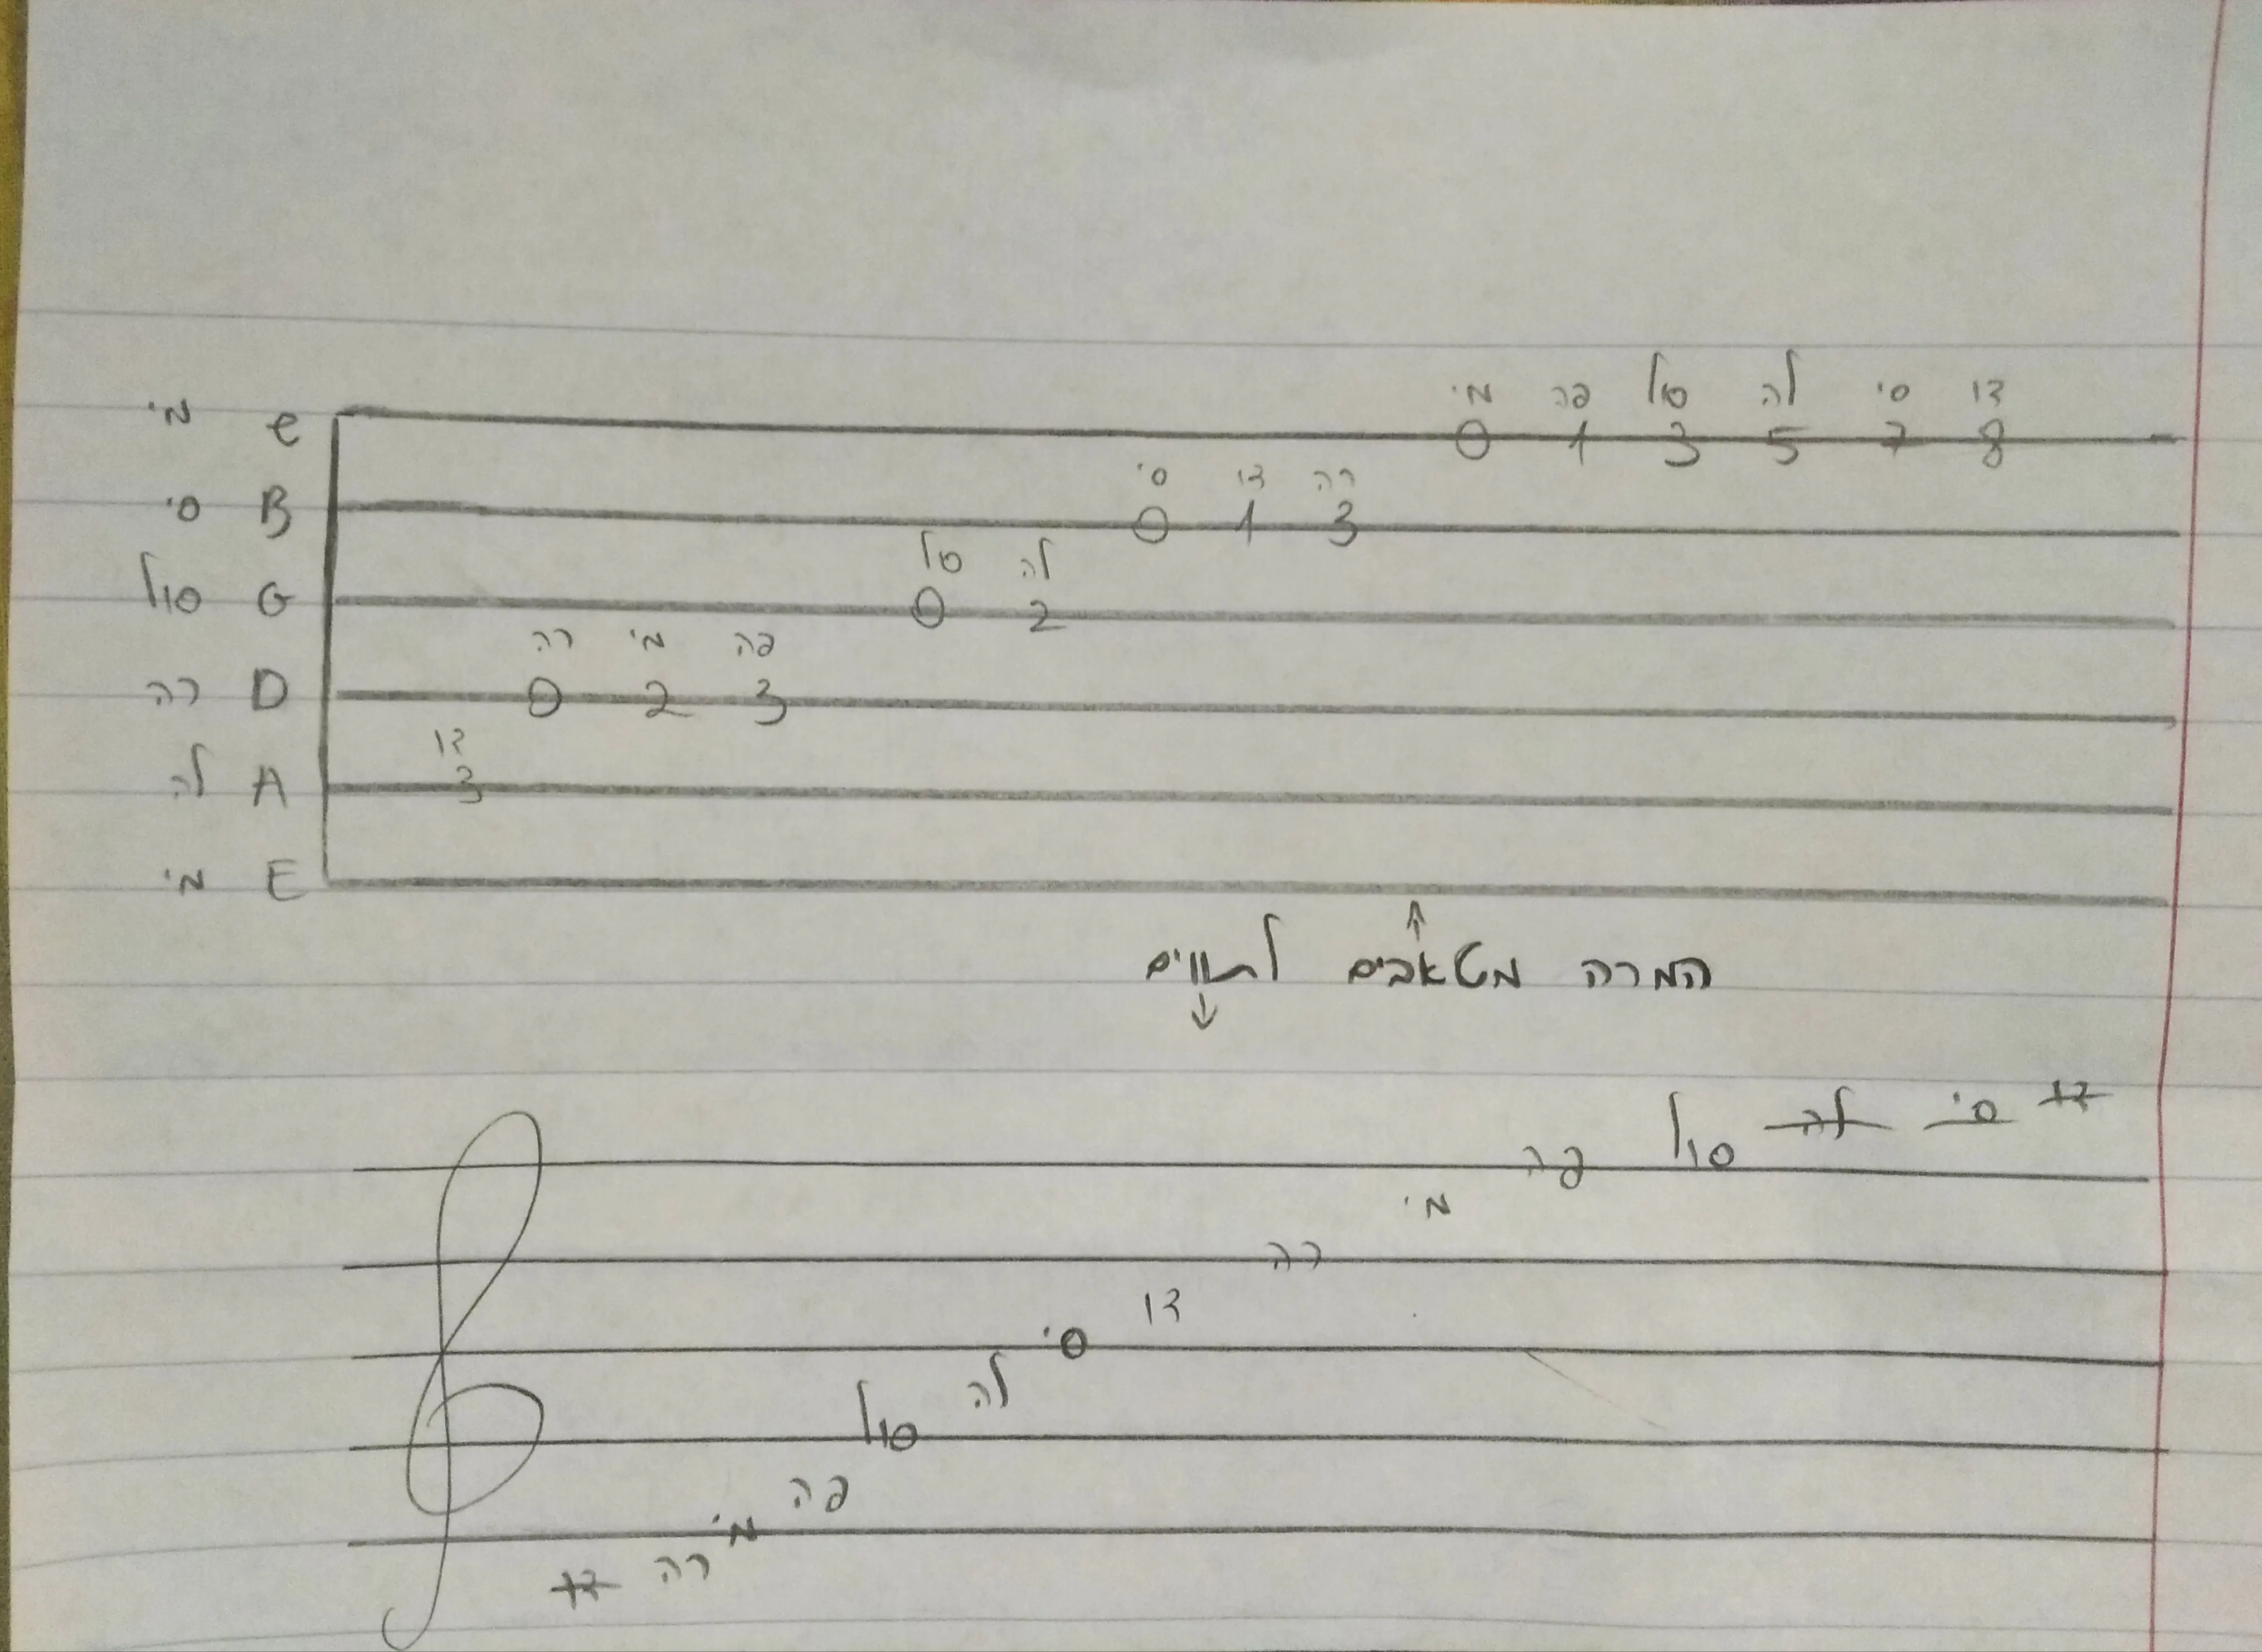 מי פה סול לה סי דו
מי e 0 1 3 5 7 8
סי דו רה
סי B 0 1 3
סול לה
סול G 0 2
רה מי פה
רה D 0 2 3
דו
לה A 3
מי E
המרה מטאבים לתווים
דו רה מי פה סול לה סי דו רה מי פה סול לה סי דו